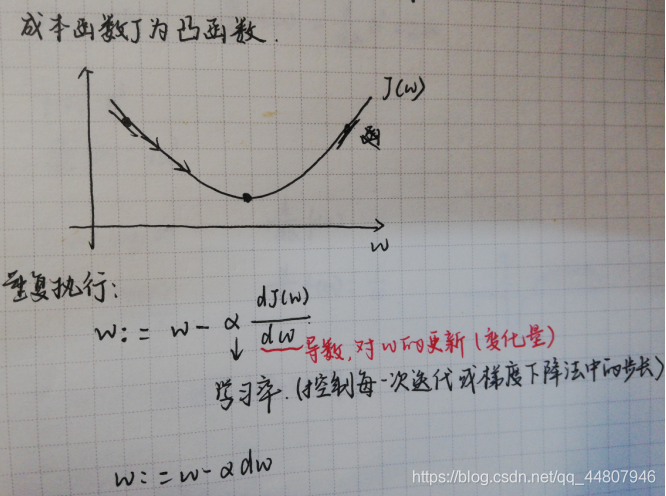 成本函数J为凸函数.
J(w)
w
重复执行:
w:= w - α dJ(w)/dw
导数,对w的更新(变化量)
学习率.(控制每一次迭代或梯度下降法中的步长)
w:= w - αdw
https://blog.csdn.net/qq_44807946